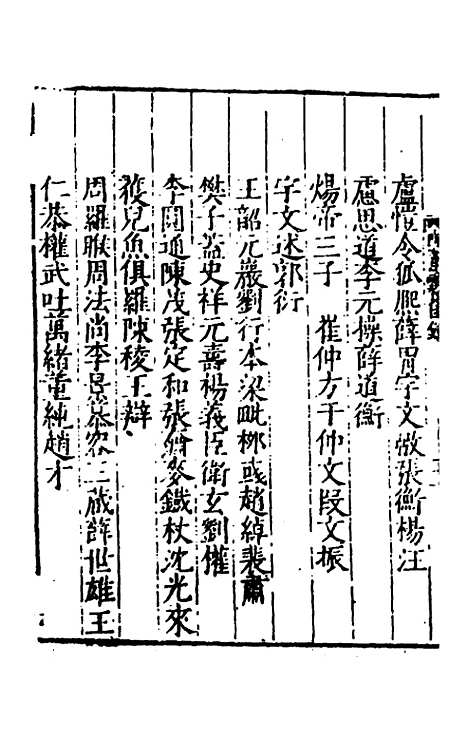 盧愷令狐熙薛胄宇文㢸張衡楊汪
盧思道李元操薛道衡
煬帝三子　崔仲方于仲文段文振
宇文述郭衍
王韶元巖劉行本梁毗栁彧趙綽裴肅
樊子盖史祥元壽楊義臣衛玄劉權
李圓通陳茂張定和張奫麥鐵杖沈光來
䕶兒魚俱羅陳稜王辯
周羅㬋周法尚李景慕容三藏薛世雄王
仁恭權武吐萬緒董純趙才